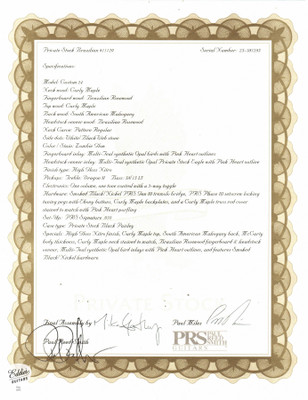 Private Stock Brazilian
Serial Number:
Specifications:
Model: Custom 24
Neck wood: Curly Maple
Fingerboard wood: Brazilian Rosewood
Top wood: Curly Maple
Back wood: South American Mahogany
Headstock veneer wood: Brazilian Rosewood
Neck Carve: Pattern Regular
Side dots: White/Black
Color / Stain:
Fingerboard inlay: Multi-Teal synthetic Opal birds with Pink Heart outlines
Headstock veneer inlay: Multi-Teal synthetic Opal Private Stock Eagle with Pink Heart outline
Finish type: High Gloss Nitro
Pickups: Treble:
Electronics: One volume, one tone control with a 5-way toggle
Hardware: Smoked Black/Nickel PRS Gen III tremolo bridge, PRS Phase III intercon locking
tuning pegs with Ebony buttons, Curly Maple backplates, and a Curly Maple truss rod cover
stained to match with Pink Heart purfling
Set-Up: PRS Signature
Case type: Private Stock Black Paisley
Specials: High Gloss Nitro finish, Curly Maple top, South American Mahogany back, McCarty
body thickness, Curly Maple neck stained to match, Brazilian Rosewood fingerboard & headstock
veneer, Multi-Teal synthetic Opal bird inlays with Pink Heart outlines, and features Smoked
Black/Nickel hardware
PRIVATE STOCK
Final Assembly by
Paul Miles
Paul Reed Smith
PRS PAUL REED SMITH
GUITARS
Eddie's
GUITARS